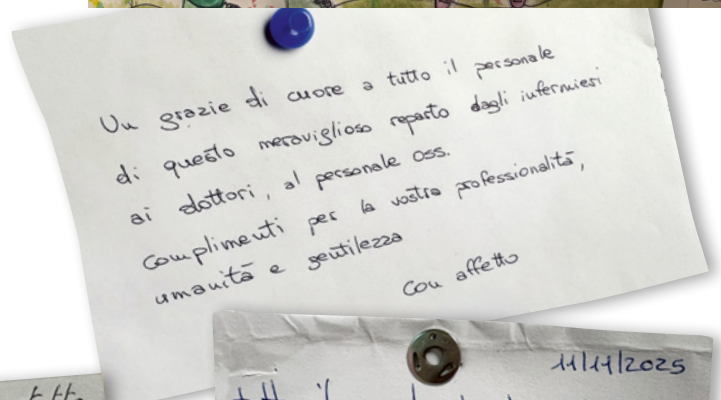 Un grazie di cuore a tutto il personale
di questo meraviglioso reparto dagli infermieri
ai dottori, al personale oss.
Complimenti per la vostra professionalità,
umanità e gentilezza
Con affetto
11/11/2025